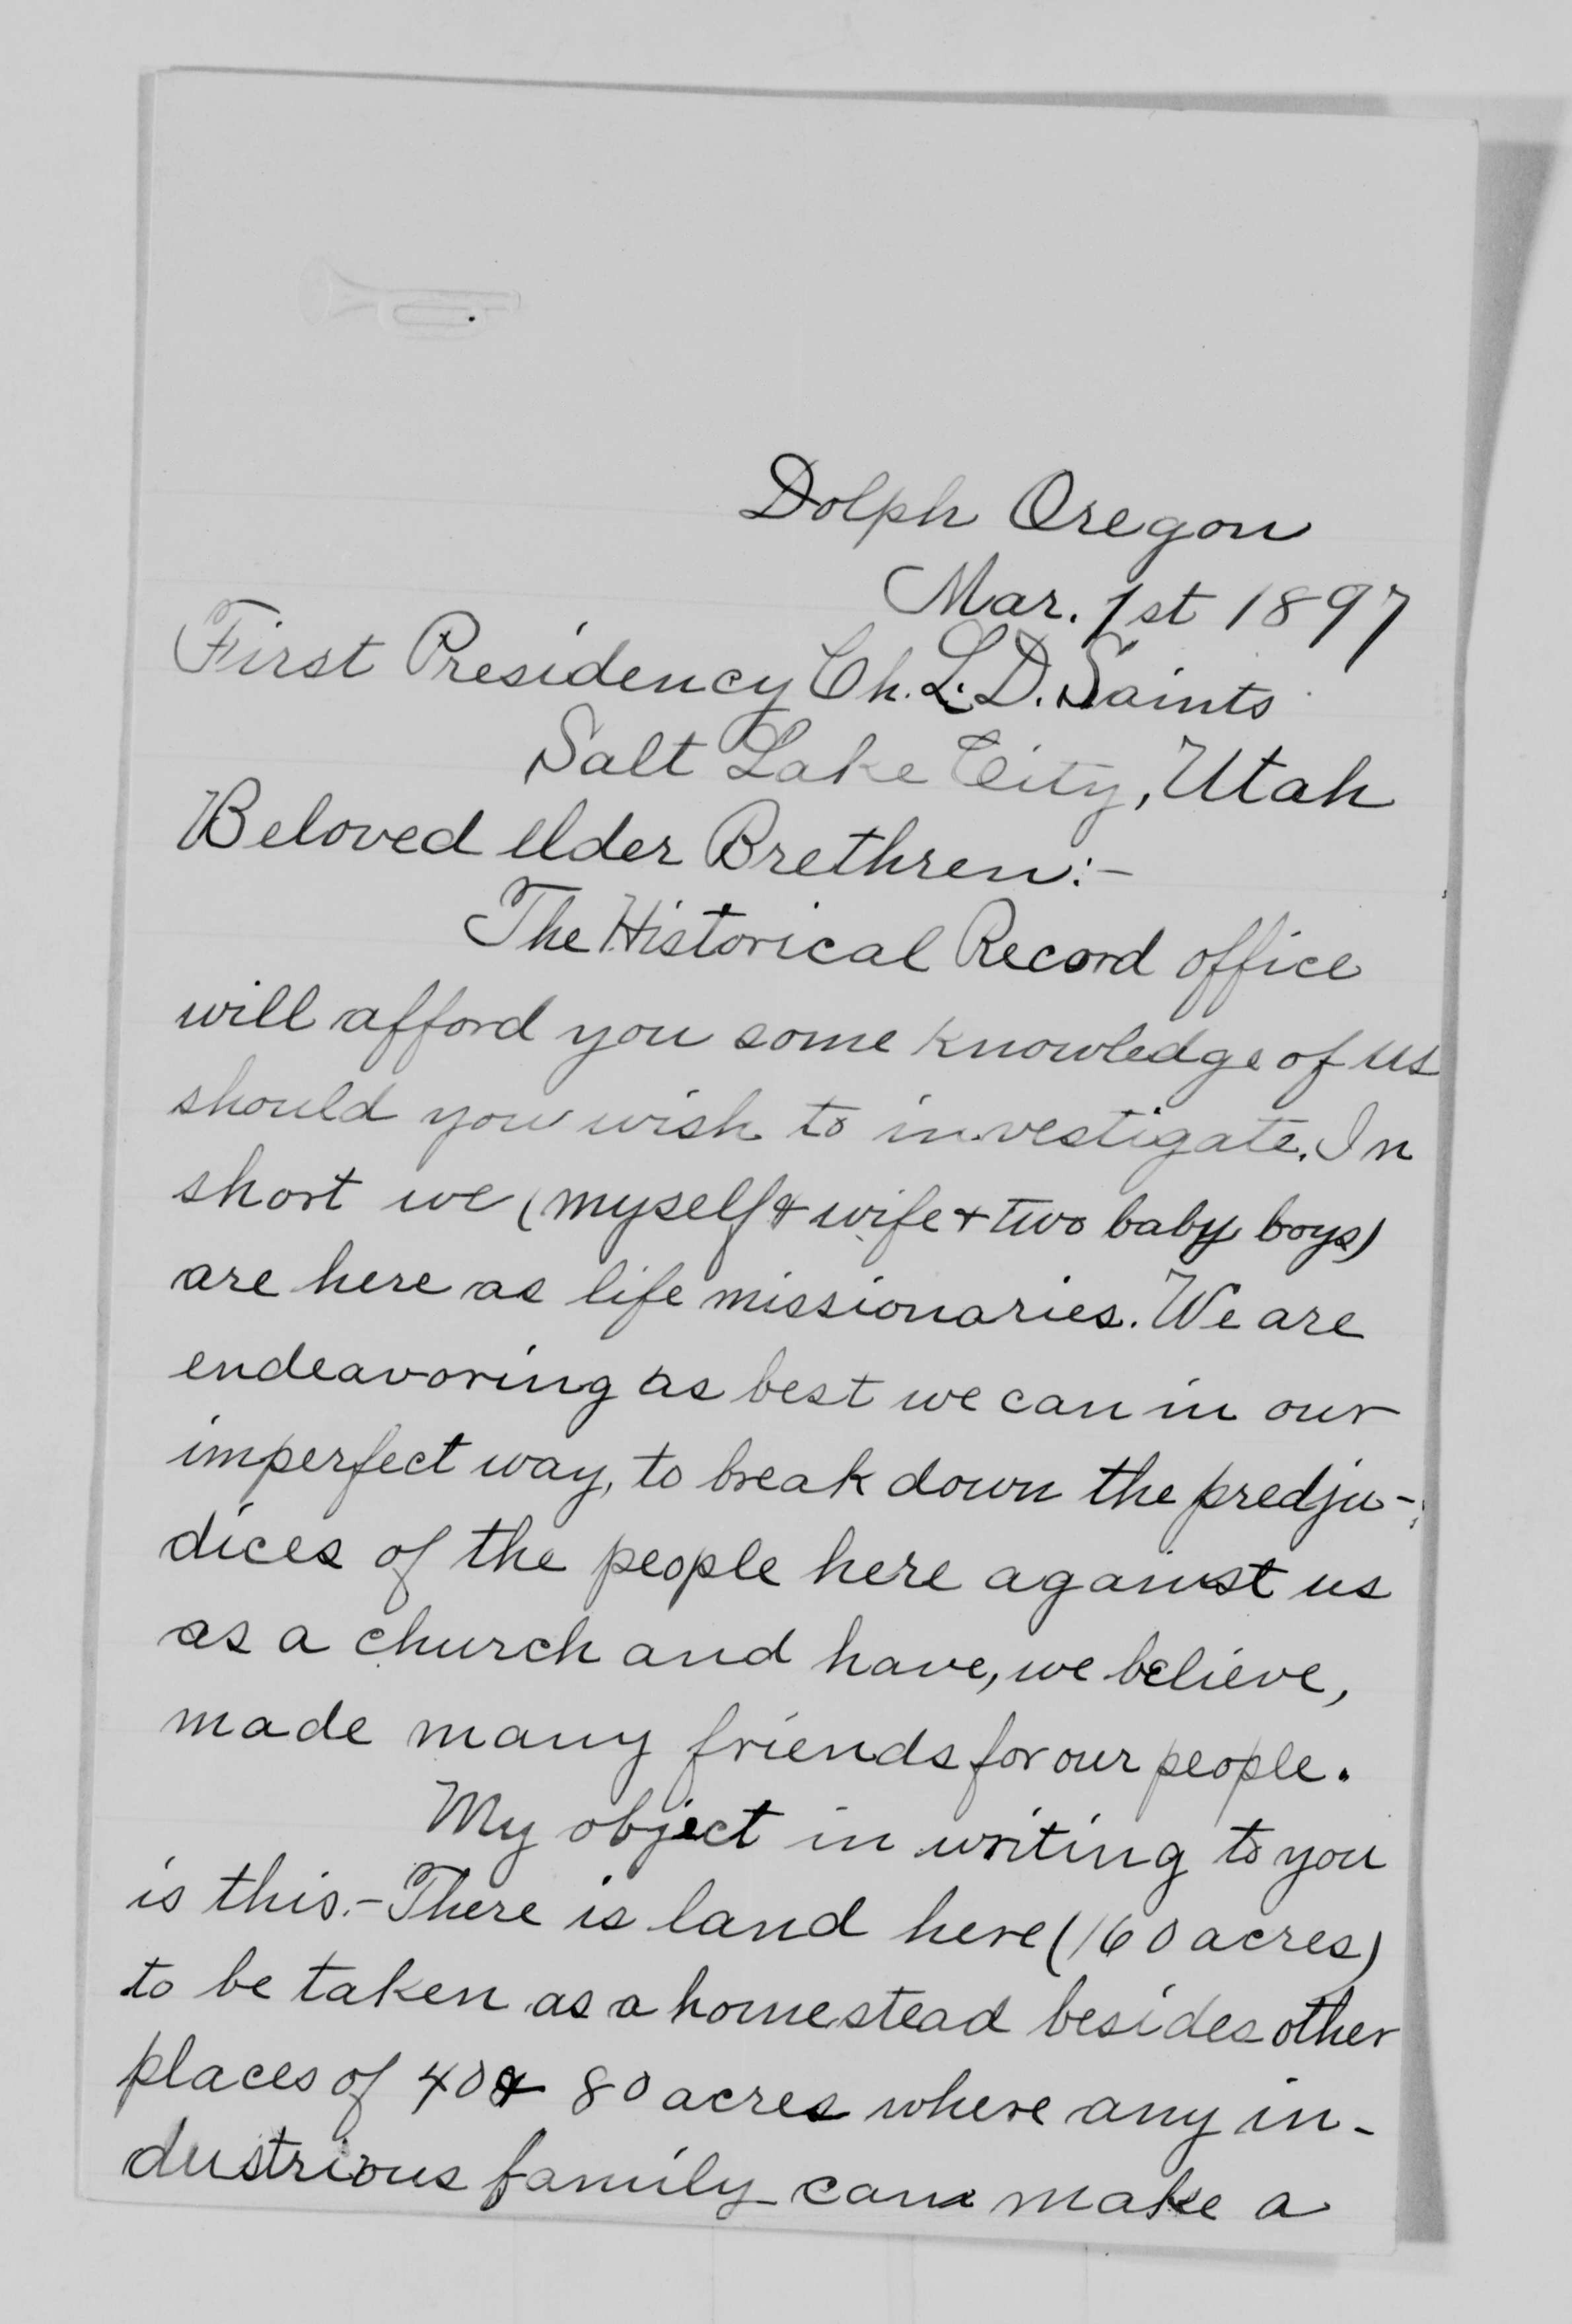 Dolph Oregon
Mar. 1st 1897
First Presidency Ch. L. D. Saints
Salt Lake City, Utah
Beloved elder Brethren:-
The Historical Record office
will afford you some knowledge of us
should you wish to investigate. In
short we (myself & wife & two baby boys)
are here as life missionaries. We are
endeavoring as best we can in our
imperfect way, to break down the predju-
dices of the people here against us
as a church and have, we believe,
made many friends for our people.
My object in writing to you
is this.- There is land here (160 acres)
to be taken as a homestead besides other
places of 40 & 80 acres where any in-
dustrious family can make a